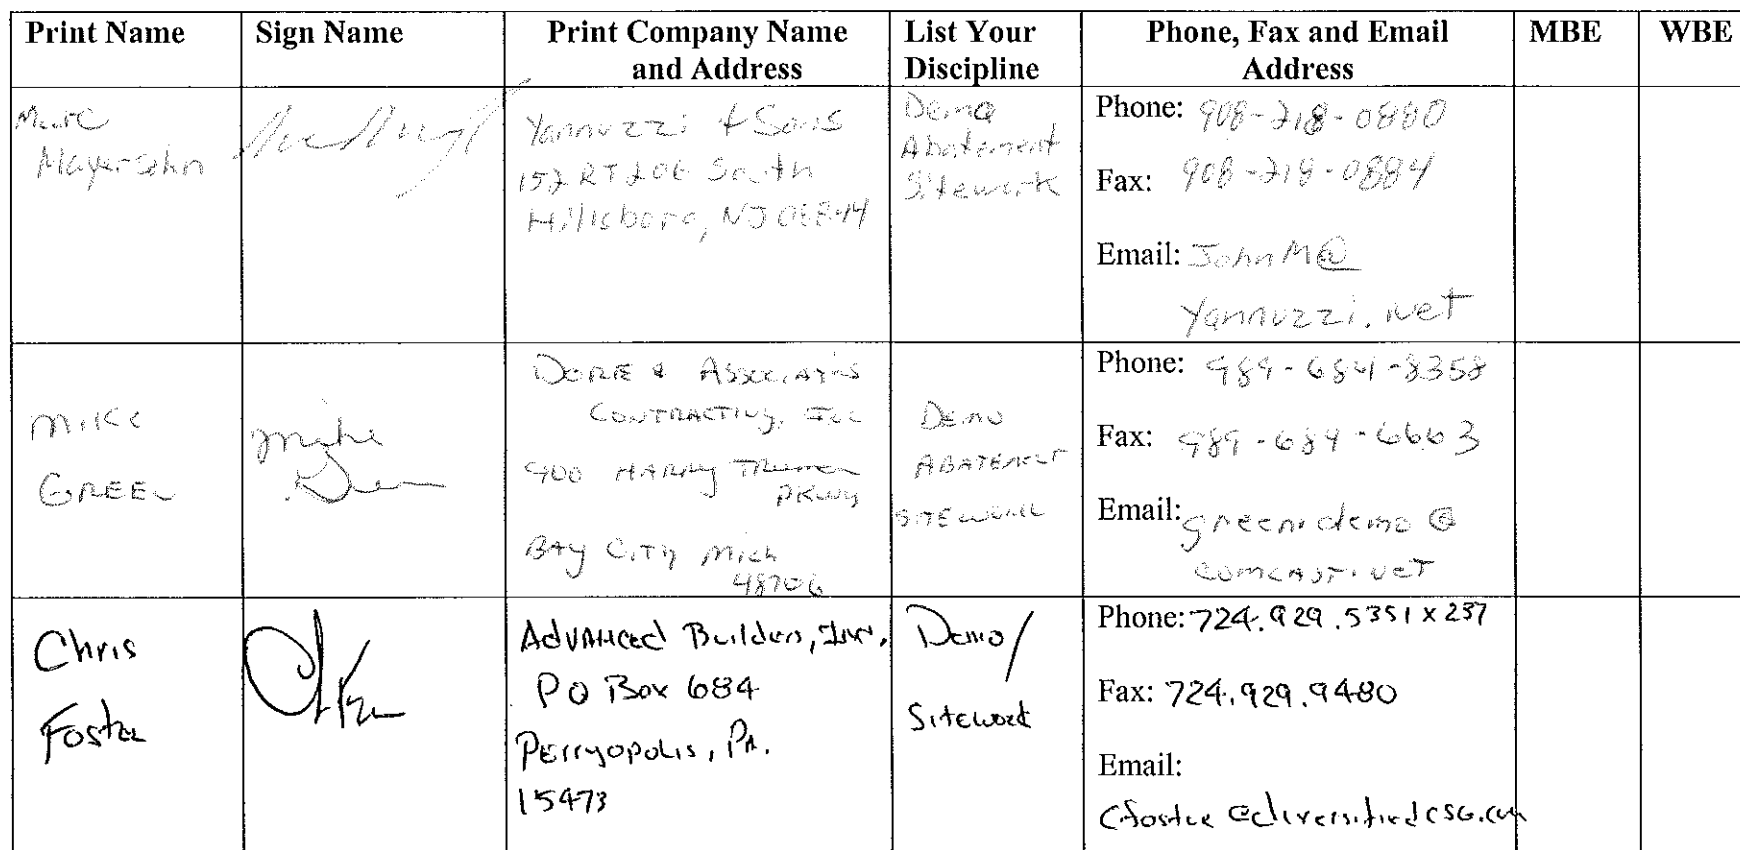 Print Name
Sign Name
Print Company Name
and Address
List Your
Discipline
Phone, Fax and Email
Address
MBE
WBE
Marc
Mayersohn
Yannuzzi + Sons
152 RT 206 South
Hillsboro, NJ 08844
Demo
Abatement
Sitework
Phone: 908-218-0880
Fax: 908-218-0884
Email: JohnM@
Yannuzzi.net
MIKE
GREEN
Mike
Green
DORE & ASSOCIATES
CONTRACTING, INC
900 HARRY TRUMAN
PKWY
BAY CITY MICH
48706
DEMO
ABATEMENT
SITEWORK
Phone: 989-684-8358
Fax: 989-684-6663
Email: greenidemo@
comcast.net
Chris
Foster
Advanced Builders, Inc.
PO Box 684
Perryopolis, PA.
15473
Demo/
Sitework
Phone: 724.929.5351 x 237
Fax: 724.929.9480
Email:
cfoster@diversifiedcsg.com